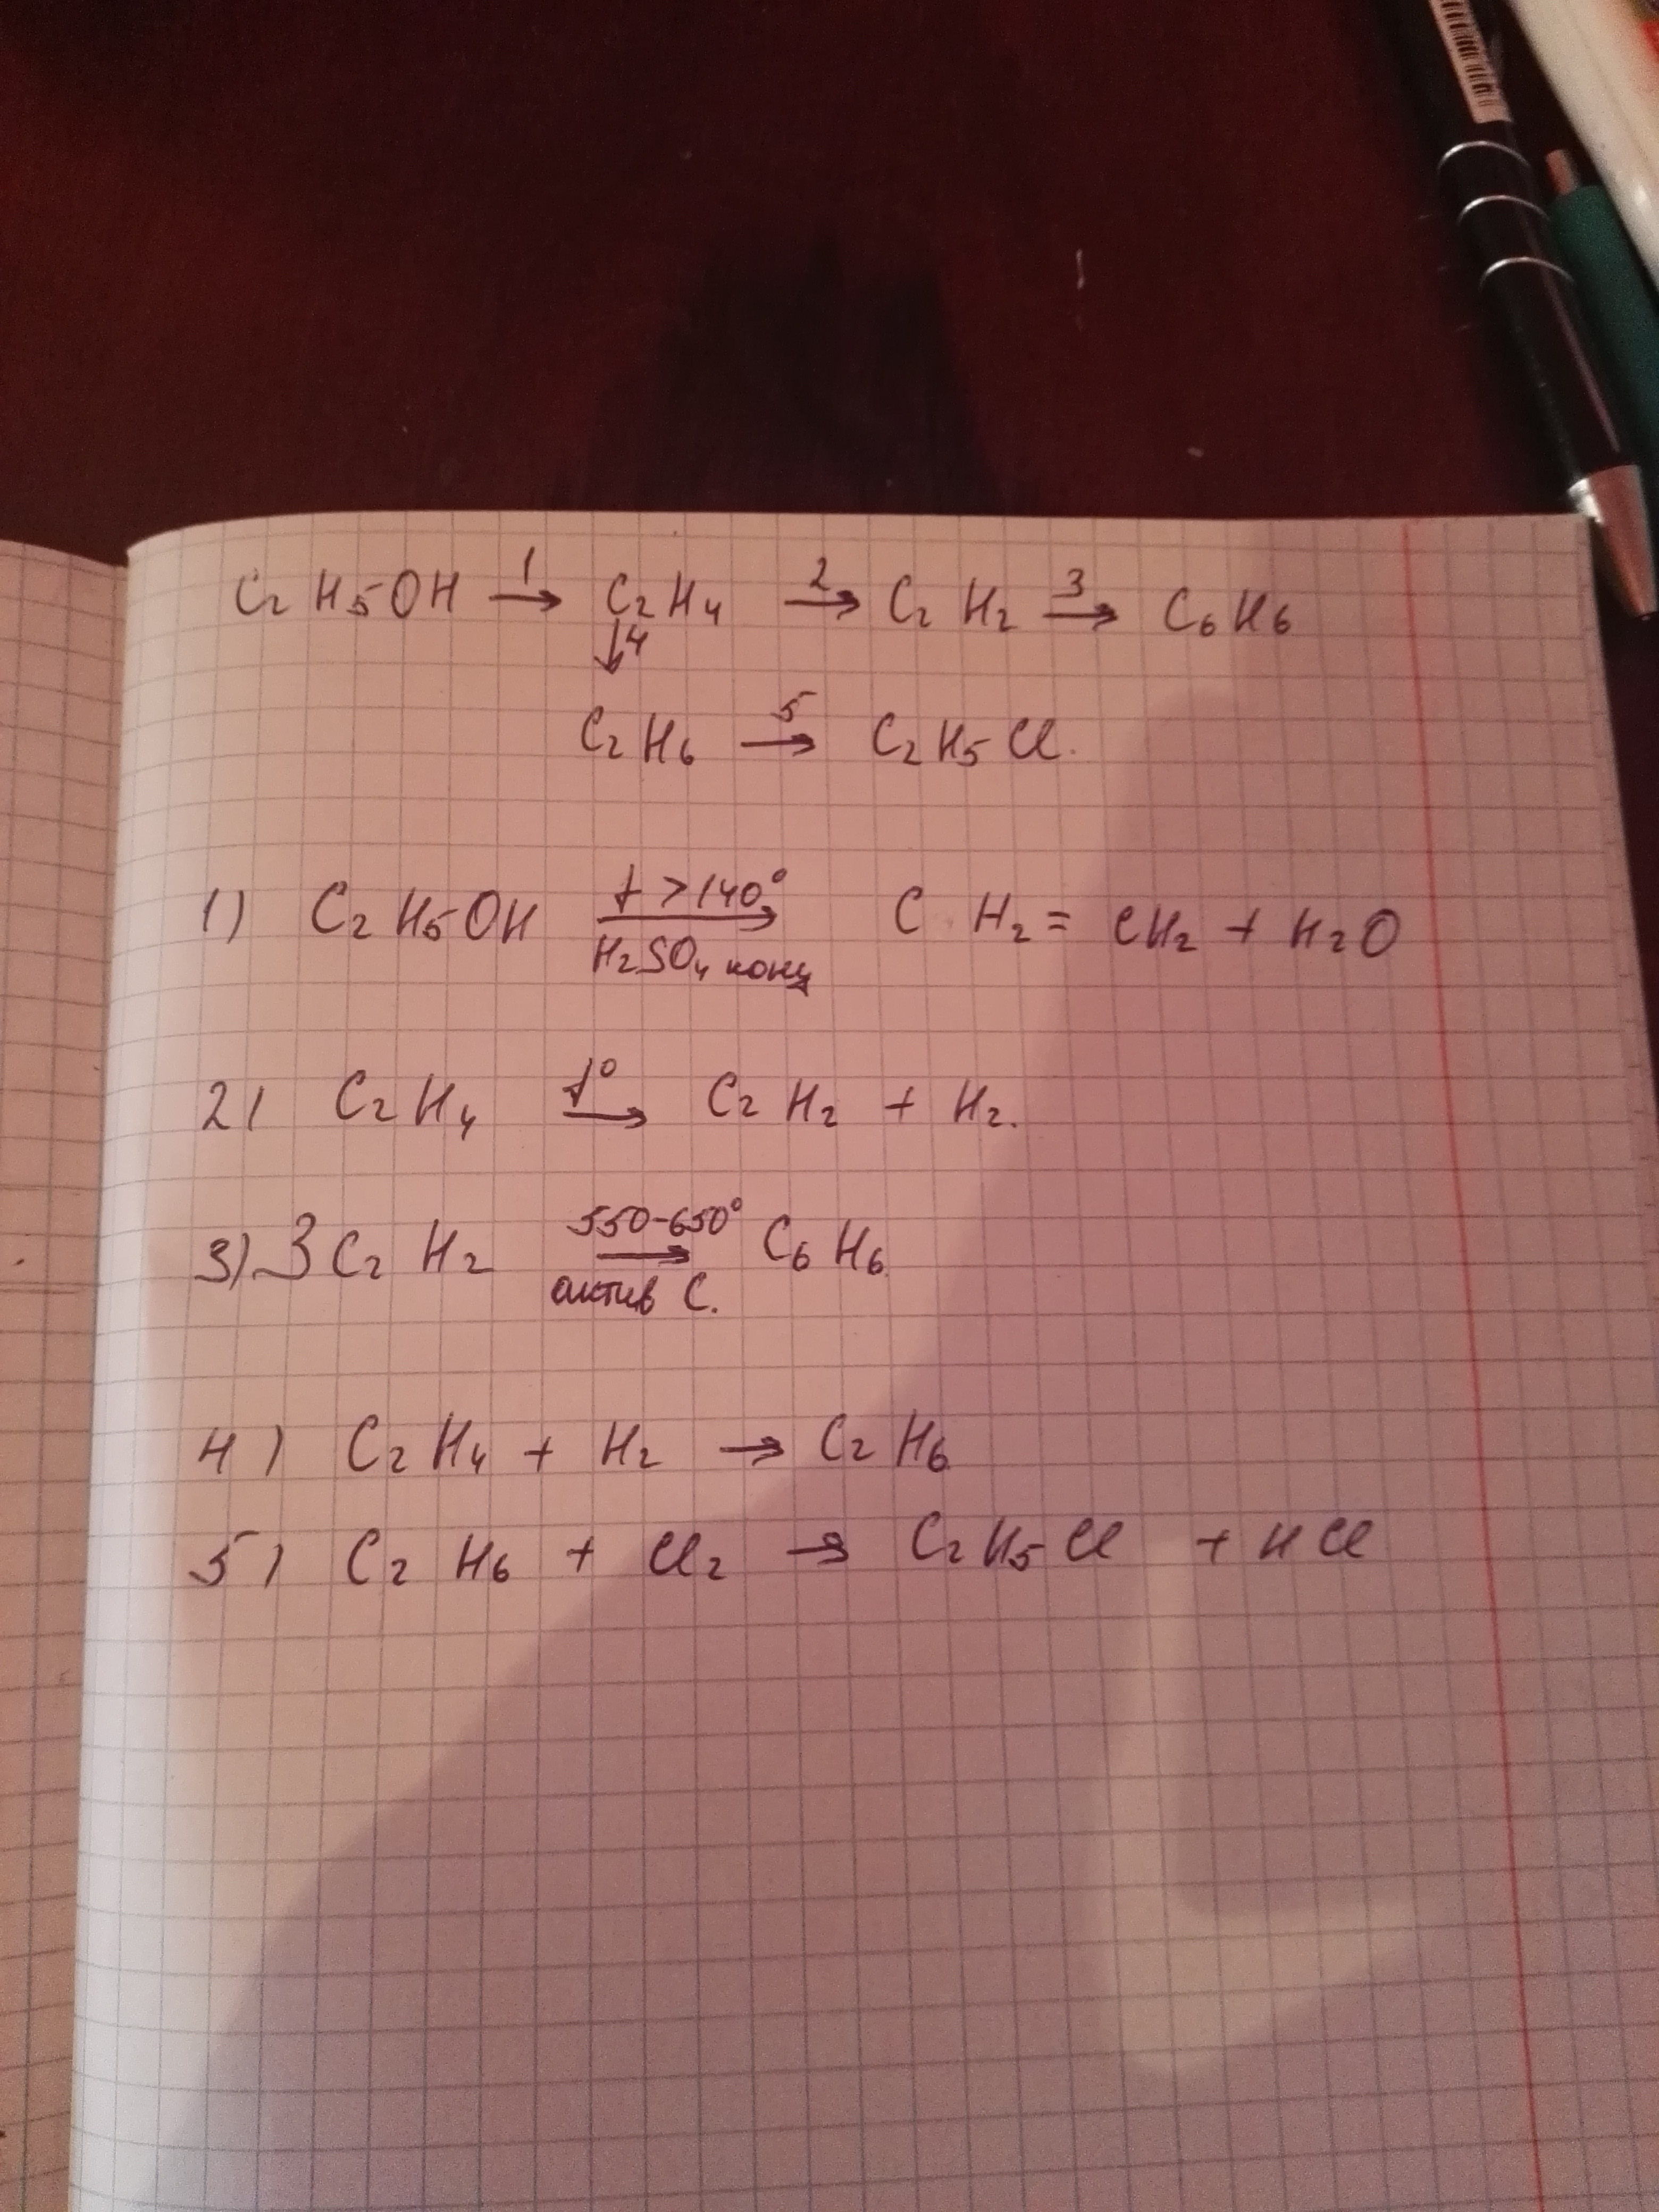 C₂H₅OH →1 C₂H₄ →2 C₂H₂ →3 C₆H₆
↓4
C₂H₆ →5 C₂H₅Cl.
1) C₂H₅OH t >140° → H₂SO₄ конц CH₂ = CH₂ + H₂O
2) C₂H₄ t° → C₂H₂ + H₂.
3) 3C₂H₂ 550-650° → актив C. C₆H₆
4) C₂H₄ + H₂ → C₂H₆
5) C₂H₆ + Cl₂ → C₂H₅Cl + HCl